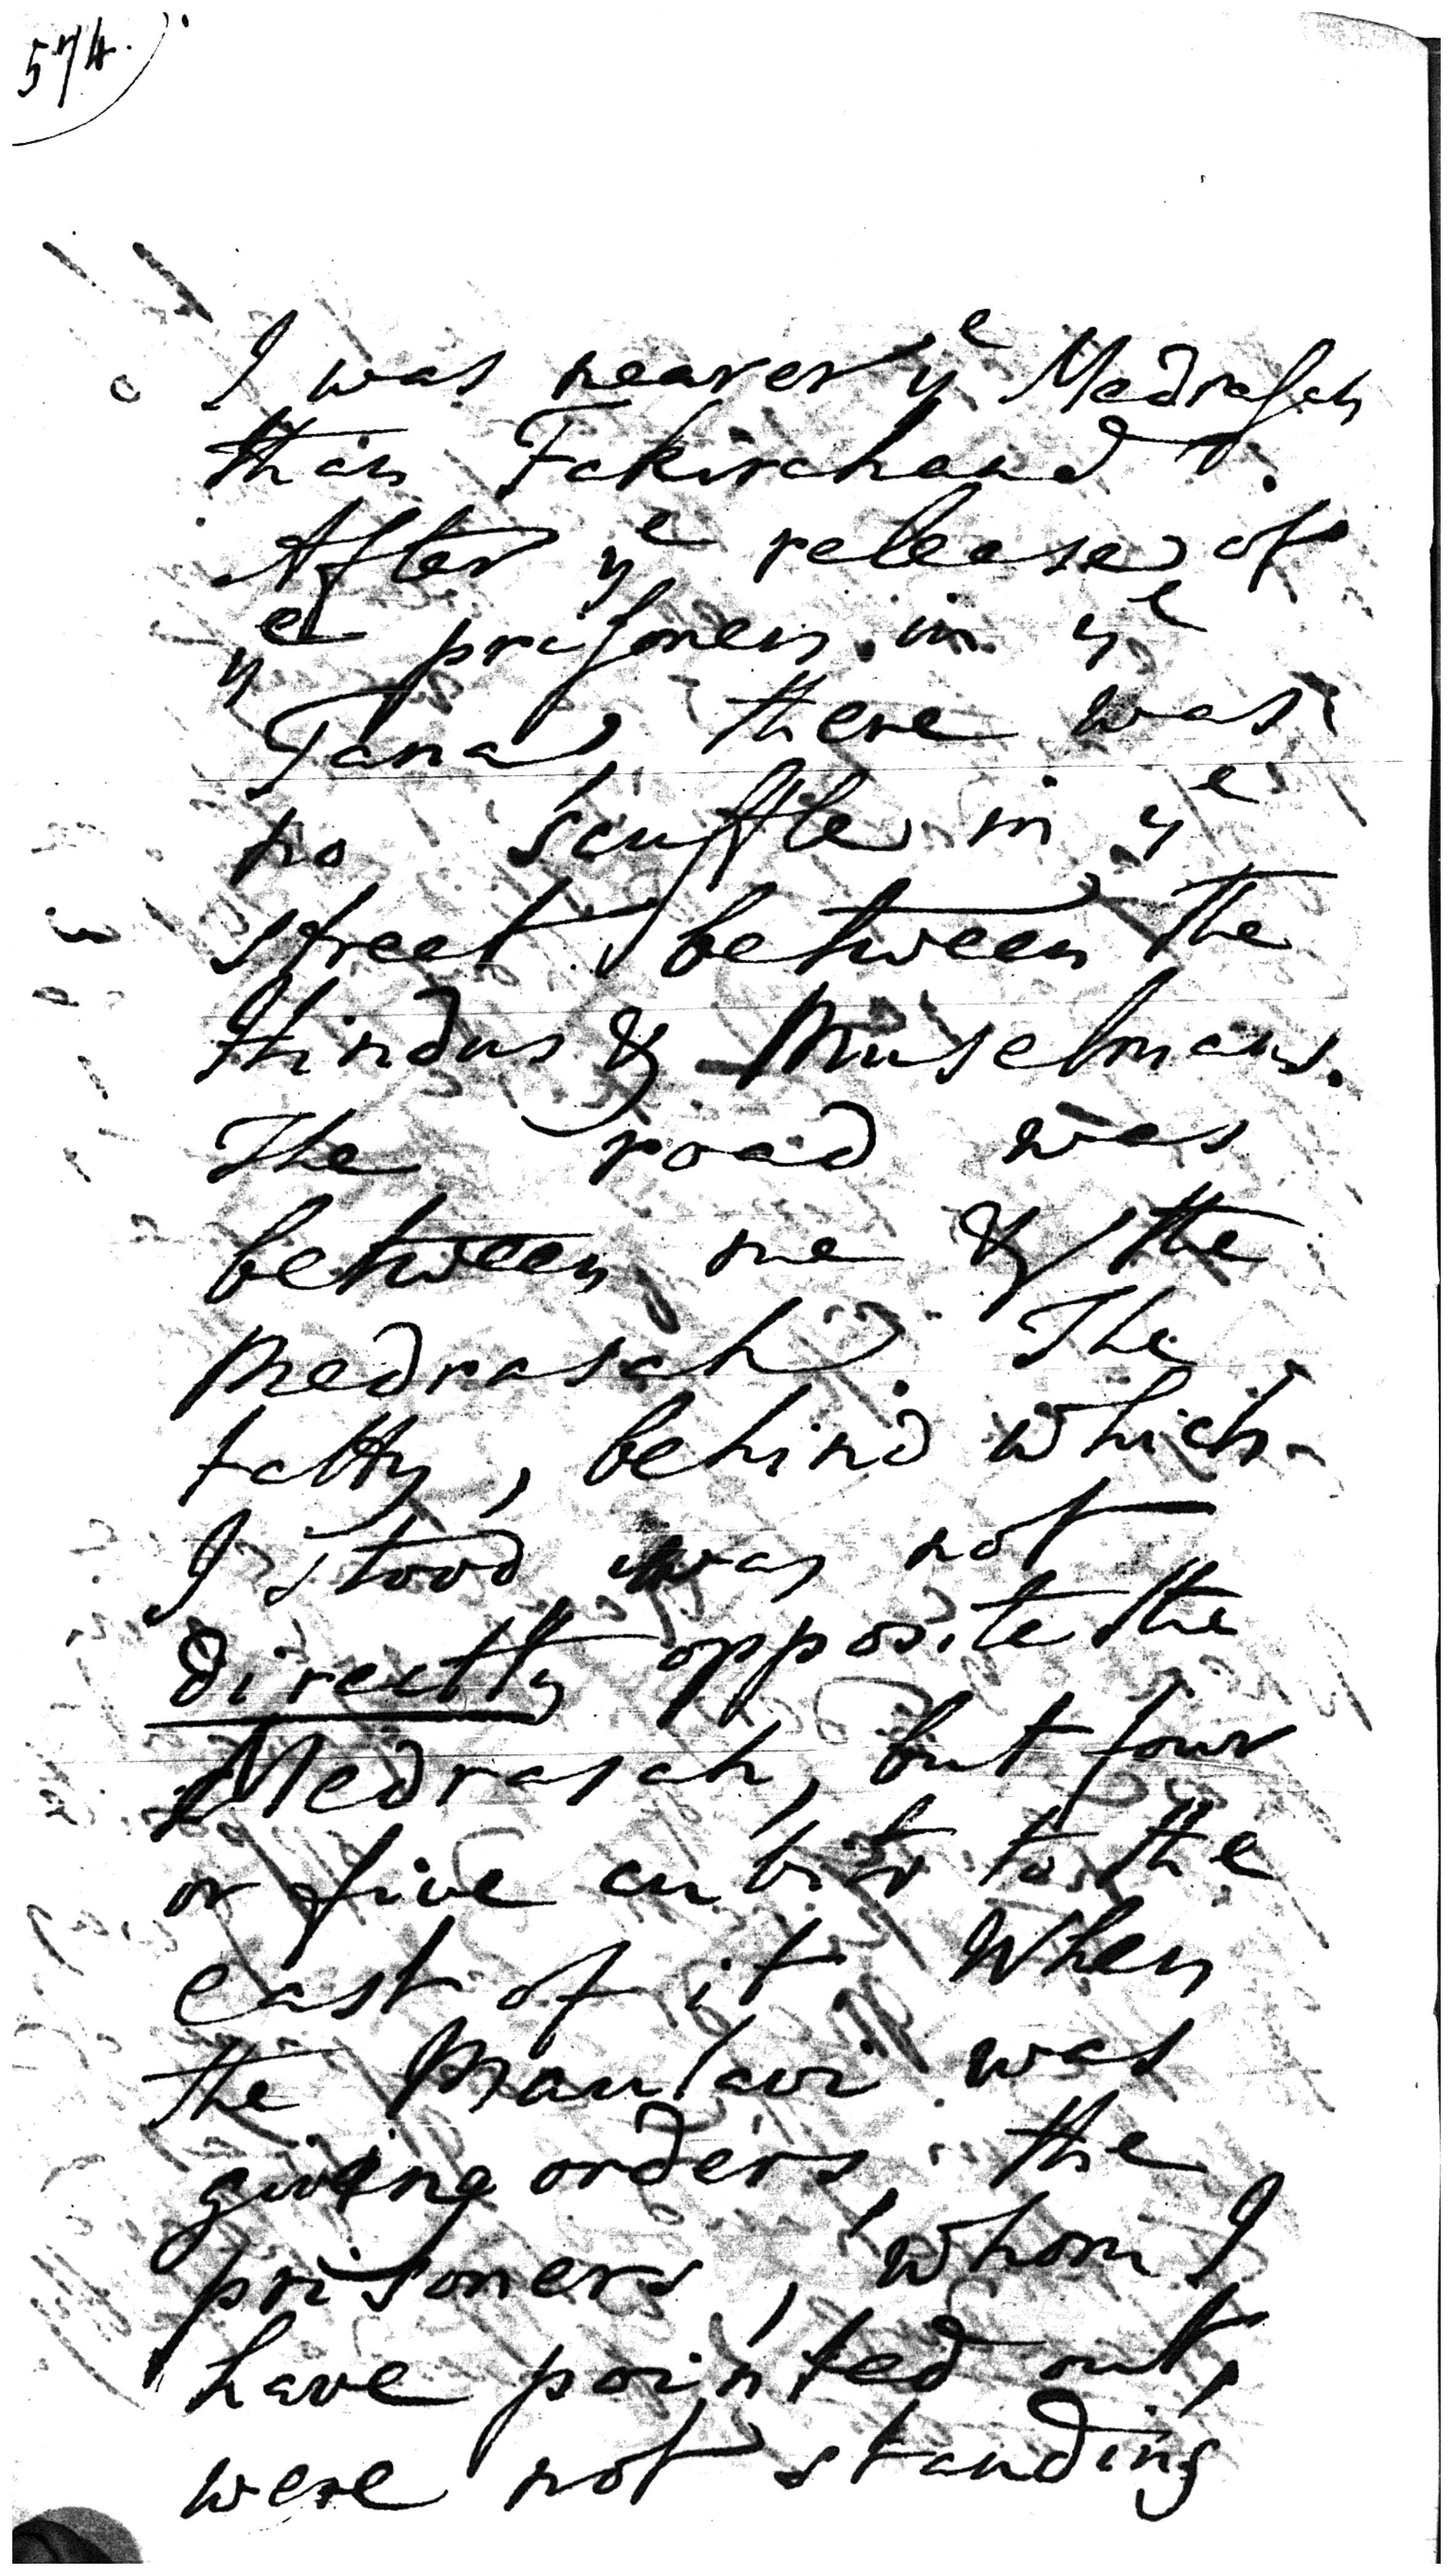 574.
I was nearer yᵉ Medraſah
than Fakirchand.
After yᵉ release of
yᵉ priſoners in yᵉ
Tana, there was
no scuffle in yᵉ
street between the
Hindus & Muselmans.
The road was
between me & the
Medrasah. The
tatty, behind which
I stood was not
directly opposite the
Medrasah, but four
or five cubits to the
east of it When
the Maulavi was
giving orders, the
prisoners, whom I
have pointed out,
were not standing